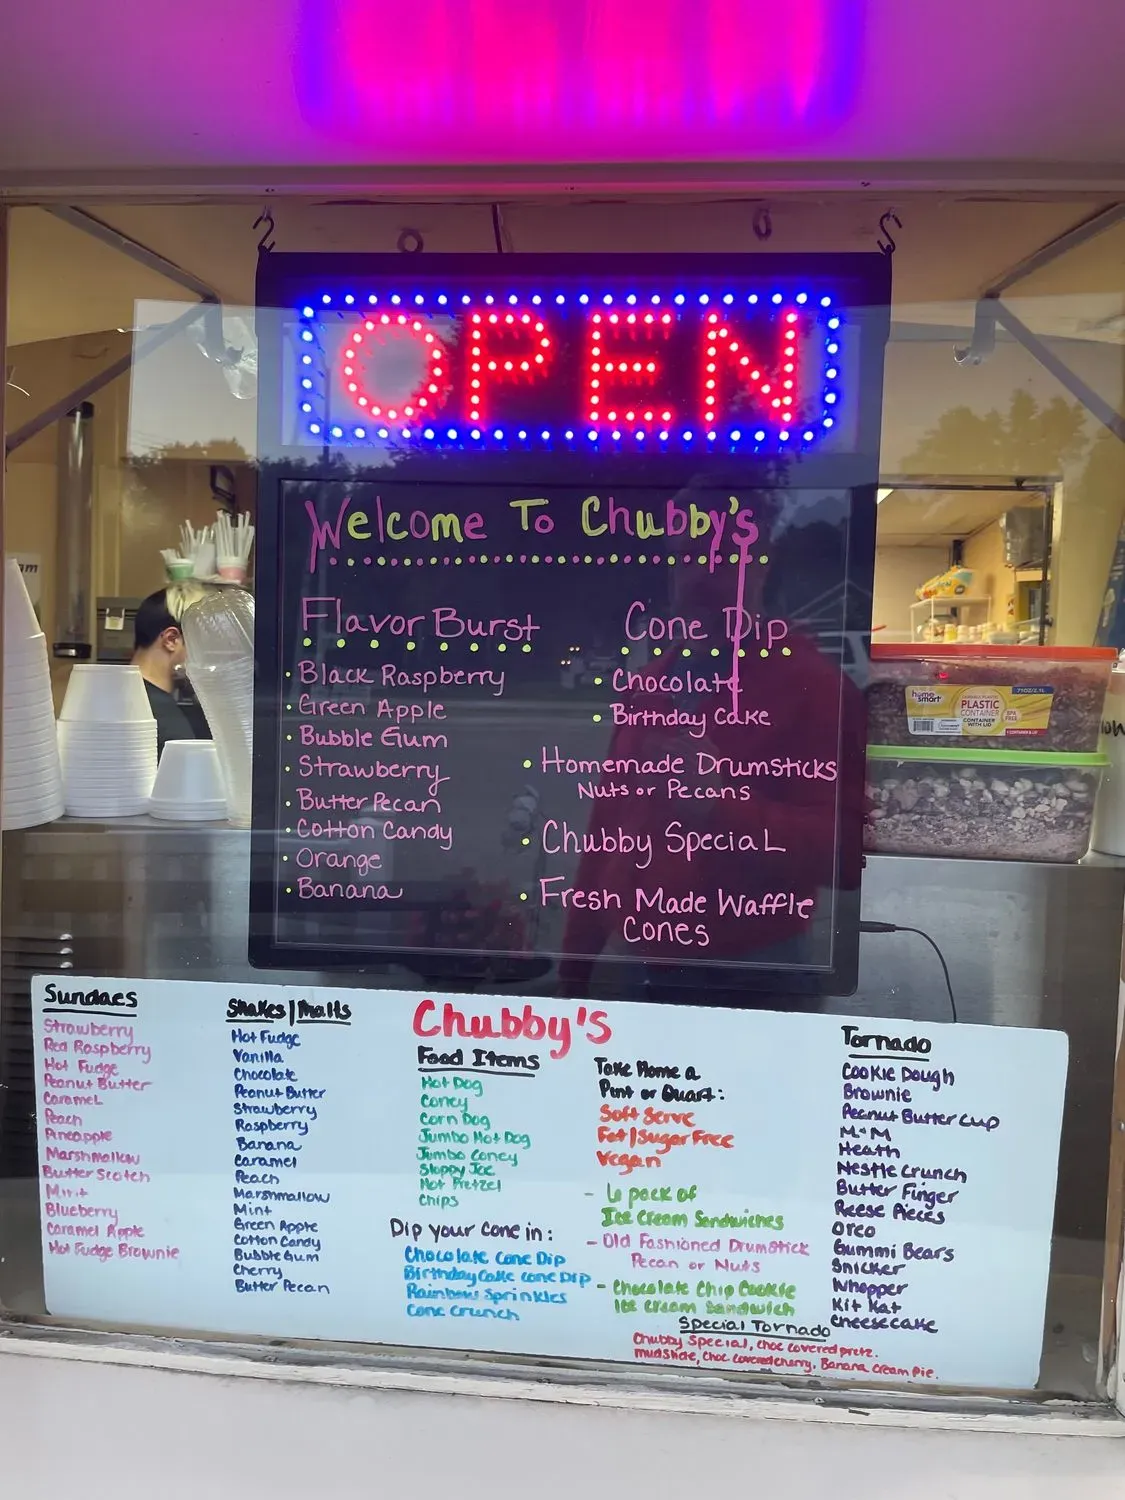 OPEN
Welcome To Chubby's
Flavor Burst
• Black Raspberry
• Green Apple
• Bubble Gum
• Strawberry
• Butter Pecan
• Cotton Candy
• Orange
• Banana
Cone Dip
• Chocolate
• Birthday Cake
• Homemade Drumsticks
Nuts or Pecans
• Chubby Special
• Fresh Made Waffle
Cones
home
smart
PLASTIC
CONTAINER
CONTAINER WITH LID
71OZ/2.1L
BPA
FREE
Sundaes
Strawberry
Red Raspberry
Hot Fudge
Peanut Butter
Caramel
Peach
Pineapple
Marshmallow
Butter Scotch
Mint
Blueberry
Caramel Apple
Hot Fudge Brownie
Shakes/Malts
Hot Fudge
Vanilla
Chocolate
Peanut Butter
Strawberry
Raspberry
Banana
Caramel
Peach
Marshmallow
Mint
Green Apple
Cotton Candy
Bubble Gum
Cherry
Butter Pecan
Chubby's
Food Items
Hot Dog
Coney
Corn Dog
Jumbo Hot Dog
Jumbo Coney
Sloppy Joe
Hot Pretzel
Chips
Dip your cone in:
Chocolate Cone Dip
Birthday Cake cone DIP
Rainbow Sprinkles
Cone Crunch
Take Home a
Pint or Quart:
Soft Serve
Fat/Sugar Free
Vegan
- 6 pack of
Ice Cream Sandwiches
- Old Fashioned Drumstick
Pecan or Nuts
- Chocolate Chip Cookie
Ice Cream Sandwich
Special Tornado
Chubby Special, Choc covered pretz.
mudslide, Choc covered cherry, Banana Cream Pie.
Tornado
Cookie Dough
Brownie
Peanut Butter Cup
M+M
Heath
Nestle Crunch
Butter Finger
Reese Pieces
Oreo
Gummi Bears
Snicker
Whopper
Kit Kat
Cheesecake